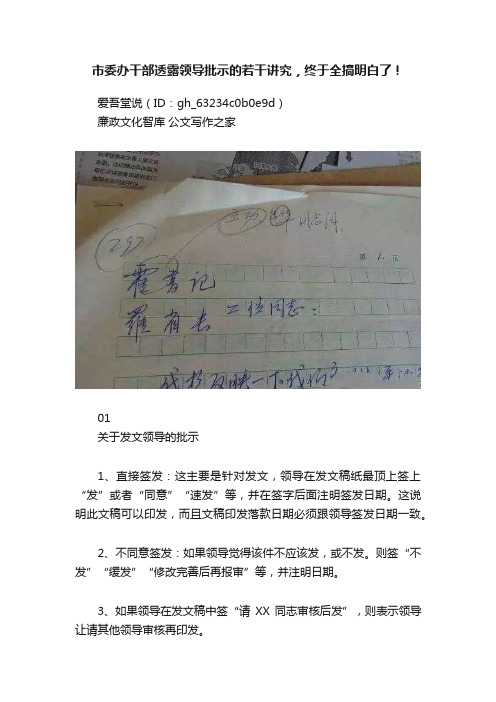 市委办干部透露领导批示的若干讲究，终于全搞明白了！
爱吾堂说（ID：gh_63234c0b0e9d）
廉政文化智库 公文写作之家
297
第 1. 页
霍书记
羅省长 二位同志：
01
关于发文领导的批示
1、直接签发：这主要是针对发文，领导在发文稿纸最顶上签上
“发”或者“同意”“速发”等，并在签字后面注明签发日期。这说
明此文稿可以印发，而且文稿印发落款日期必须跟领导签发日期一致。
2、不同意签发：如果领导觉得该件不应该发，或不发。则签“不
发”“缓发”“修改完善后再报审”等，并注明日期。
3、如果领导在发文稿中签“请 XX 同志审核后发”，则表示领导
让请其他领导审核再印发。